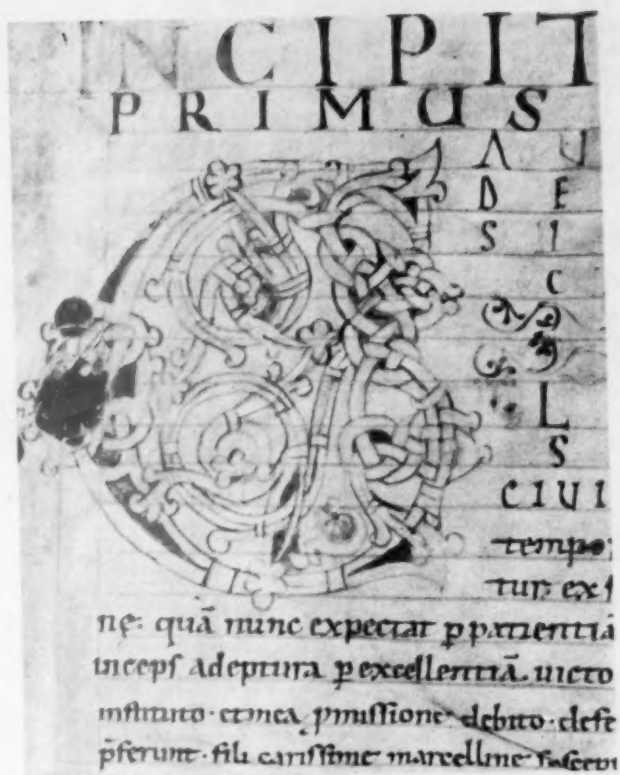 NCIPIT
PRIMUS
G
A U
D E
S I
C
L
S
CIUI
tempo
tur ex f
nę. quā nunc expectat ꝑ patientiā
inceps adeptura ꝑ excellentiā. uicto
instituto. et mea ꝓmissione debito. defe
p̄ferunt. fili carissime marcelline suscepi